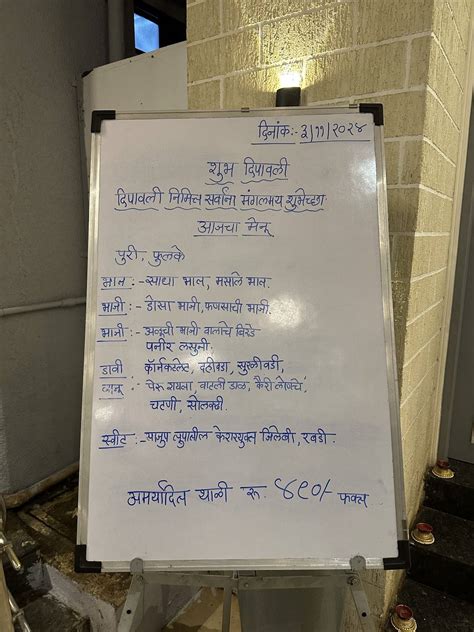 दिनांक:- ३/११/२०२४
शुभ दिपावली
दिपावली निमित्त सर्वांना मंगलमय शुभेच्छा
आजचा मेनू
पुरी, फुलके
भात :- साधा भात, मसाले भात.
भाजी :- डोसा भाजी, फणसाची भाजी.
भाजी :- अळूची भाजी वालाचे बिरडे
पनीर लसुनी.
डावी कॉर्नकटलेट, दहीवडा, सुरळीवडी,
बाजू :- पेरू रायता, वाटली डाळ, कैरी लोणचे,
चटणी, सोलकढी.
स्वीट :- साजुक तुपातील केशरयुक्त जिलेबी, रबडी.
अमर्यादित थाळी रु. ४९०/- फक्त